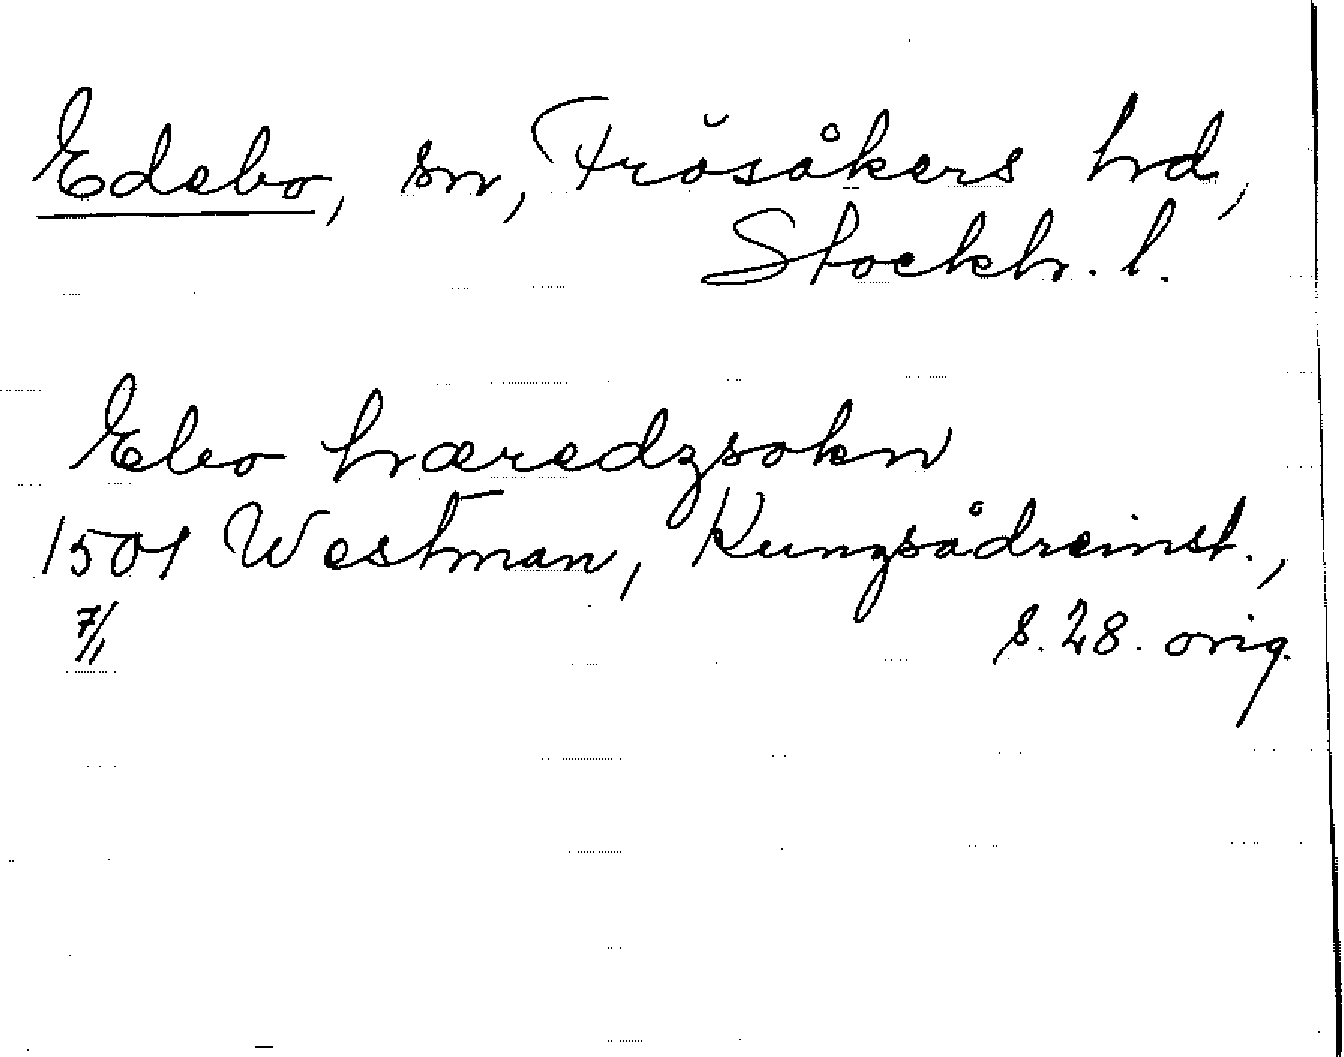 Edebo, sn, Frösåkers hrd,
Stockh. l.
Ebo hæredzsokn
1501 Westman, Kungsådreinst.,
7/11 s. 28. orig.